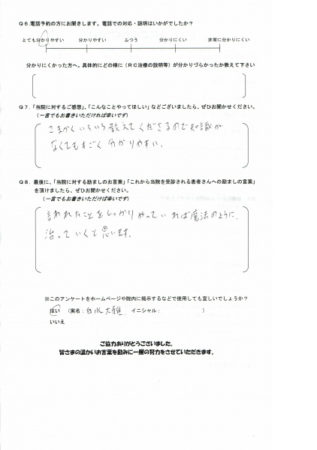 Q6.電話予約の方にお聞きします。電話での対応・説明はいかがでしたか？
とても分かりやすい　分かりやすい　ふつう　分かりにくい　非常に分かりにくい
分かりにくかった方へ。具体的にどの様に（ＲＣ治療の説明等）が分かりづらかったか教えて下さい
Q7.「当院に対するご感想」、「こんなことやってほしい」などございましたら、ぜひお聞かせください。
（一言でもお書きいただければ幸いです）
こまかくいろいろ教えてくださるので知識が
なくてもすごく分かりやすい。
Q8.最後に、「当院に対する励ましのお言葉」「これから当院を受診される患者さんへの励ましの言葉」
を頂けましたら、ぜひお聞かせください。
（一言でもお書きいただければ幸いです）
言われたことをしっかりやっていれば魔法のように、
治っていくと思います。
※このアンケートをホームページや院内に掲示するなどで使用しても宜しいでしょうか？
はい　（実名：　　イニシャル：　　）
いいえ
ご協力ありがとうございました。
皆さまの温かいお言葉を励みに一層の努力をさせていただきます。